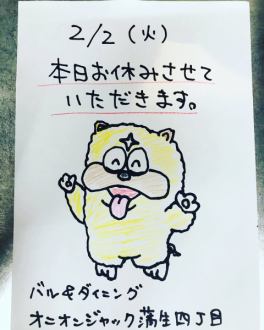 2/2(火)
本日お休みさせて
いただきます。
バル&ダイニング
オニオンジャック蒲生四丁目